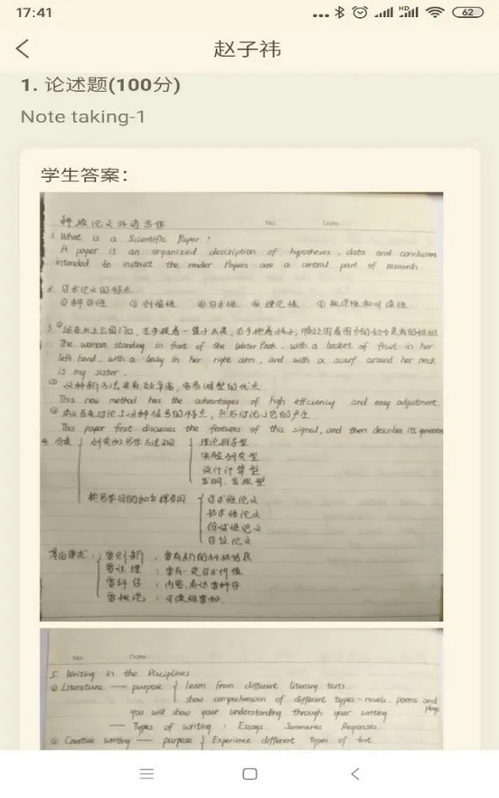 17:41
HD
62
赵子祎
1. 论述题(100分)
Note taking-1
学生答案：
科技论文外语写作
No.
Date
1. What is a Scientific Paper ?
A paper is an organized description of hypotheses , data and conclusion
intended to instruct the reader Papers are a central part of research
2. 学术论文的特点
①科学性 ②创造性 ③学术性 ④理论性
The woman standing in front of the Water Park , with a basket of fruit in her
left hand , with a baby in her right arm , and with a scarf around her neck
is my sister .
This new method has the advantages of high efficiency and easy adjustment
This paper first discusses the features of this signed, and then describes its
4. 分类
理论推导型
实验研究型
设计计算型
发明、发现型
学术性论文
技术性论文
学位论文
No.
Date
5. Writing in the Disciplines
① Literature — purpose learn from different literary texts
show comprehension of different types - novels poems and
plays
you will show your understanding through your writing
— Types of writing : Essays Summaries
② Creative writing — purpose Experience different types of text